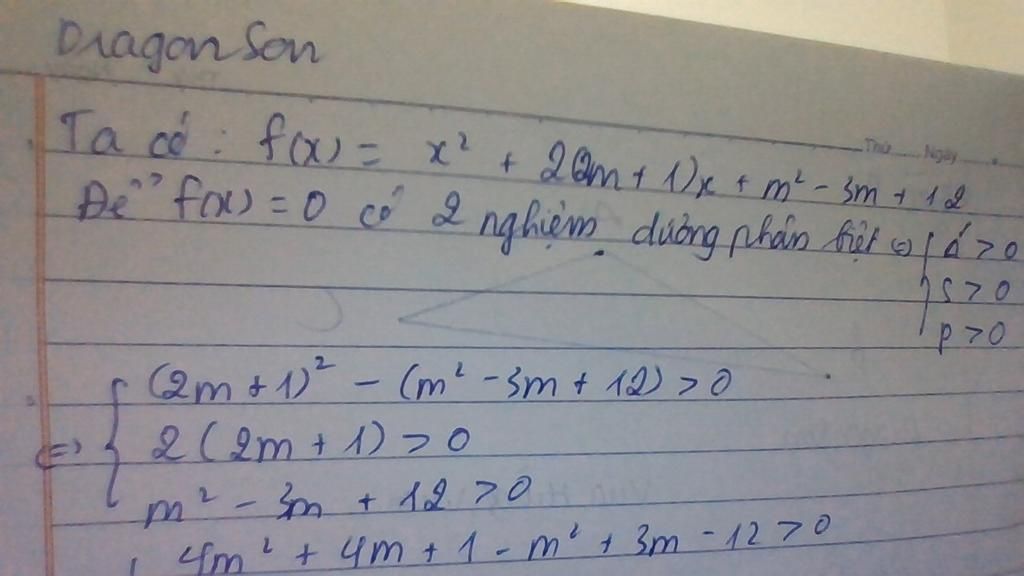 Dragon Son
Thứ Ngày
Ta có : f(x) = x² + 2(2m + 1)x + m² - 3m + 12
Để f(x) = 0 có 2 nghiệm dương phân biệt ⇔ { Δ' > 0
S > 0
P > 0
⇔ { (2m + 1)² - (m² - 3m + 12) > 0
2 (2m + 1) > 0
m² - 3m + 12 > 0
4m² + 4m + 1 - m² + 3m - 12 > 0